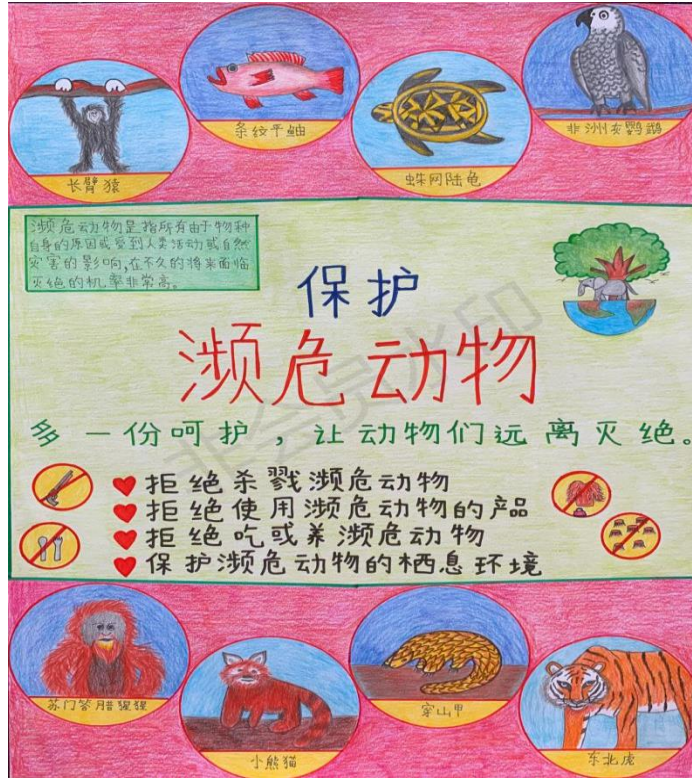 条纹平鲉
非洲灰鹦鹉
长臂猿
蛛网陆龟
濒危动物是指所有由于物种
自身的原因或受到人类活动或自然
灾害的影响,在不久的将来面临
灭绝的机率非常高。
保护
濒危动物
多一份呵护,让动物们远离灭绝。
非会员水印
拒绝杀戮濒危动物
拒绝使用濒危动物的产品
拒绝吃或养濒危动物
保护濒危动物的栖息环境
苏门答腊猩猩
小熊猫
穿山甲
东北虎